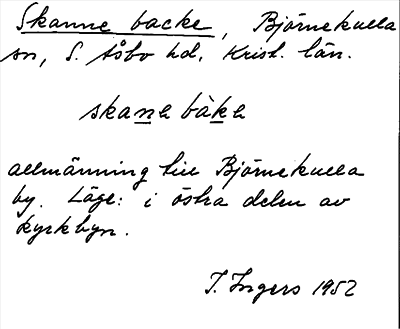 Skanne backe, Björnekulla
sn, S. Åsbo hd, Krist. län.
skanɘ bàkɘ
allmänning till Björnekulla
by. Läge: i östra delen av
kyrkbyn.
I. Ingers 1952